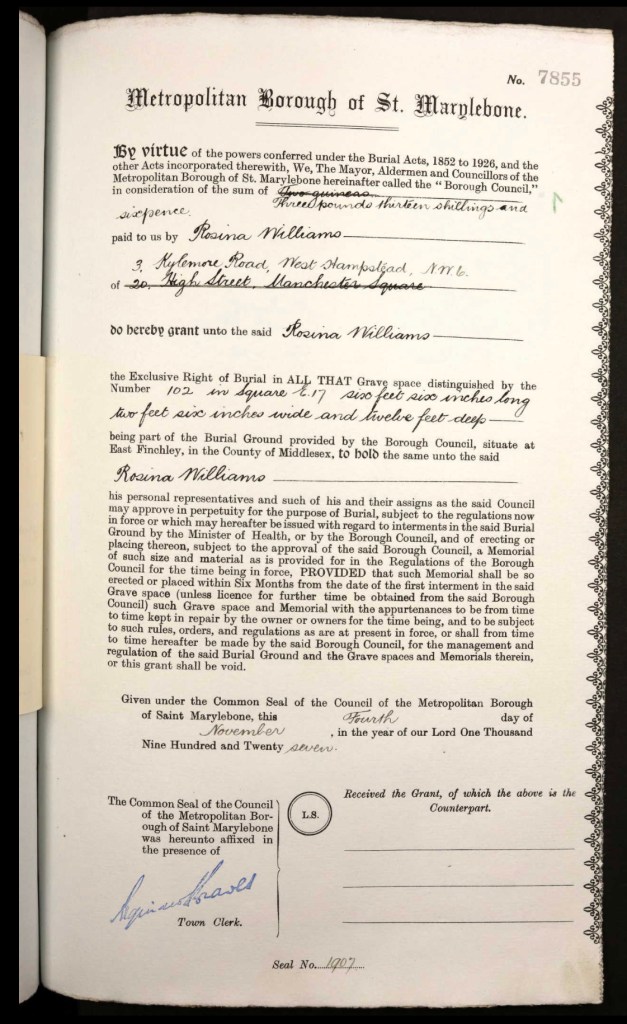 No. 7855
Metropolitan Borough of St. Marylebone.
By virtue of the powers conferred under the Burial Acts, 1852 to 1926, and the
other Acts incorporated therewith, We, The Mayor, Aldermen and Councillors of the
Metropolitan Borough of St. Marylebone hereinafter called the "Borough Council,"
in consideration of the sum of Two guineas
Three pounds thirteen shillings and
sixpence.
paid to us by Rosina Williams
3, Kylemore Road, West Hampstead, N.W.6.
of 20, High Street, Manchester Square
do hereby grant unto the said Rosina Williams
the Exclusive Right of Burial in ALL THAT Grave space distinguished by the
Number 102 in Square E.17 six feet six inches long
two feet six inches wide and twelve feet deep
being part of the Burial Ground provided by the Borough Council, situate at
East Finchley, in the County of Middlesex, to hold the same unto the said
Rosina Williams
his personal representatives and such of his and their assigns as the said Council
may approve in perpetuity for the purpose of Burial, subject to the regulations now
in force or which may hereafter be issued with regard to interments in the said Burial
Ground by the Minister of Health, or by the Borough Council, and of erecting or
placing thereon, subject to the approval of the said Borough Council, a Memorial
of such size and material as is provided for in the Regulations of the Borough
Council for the time being in force, PROVIDED that such Memorial shall be so
erected or placed within Six Months from the date of the first interment in the said
Grave space (unless licence for further time be obtained from the said Borough
Council) such Grave space and Memorial with the appurtenances to be from time
to time kept in repair by the owner or owners for the time being, and to be subject
to such rules, orders, and regulations as are at present in force, or shall from time
to time hereafter be made by the said Borough Council, for the management and
regulation of the said Burial Ground and the Grave spaces and Memorials therein,
or this grant shall be void.
Given under the Common Seal of the Council of the Metropolitan Borough
of Saint Marylebone, this Fourth day of
November , in the year of our Lord One Thousand
Nine Hundred and Twenty seven.
The Common Seal of the Council
of the Metropolitan Bor-
ough of Saint Marylebone
was hereunto affixed in
the presence of
L.S.
Received the Grant, of which the above is the
Counterpart.
Town Clerk.
Seal No. 1907